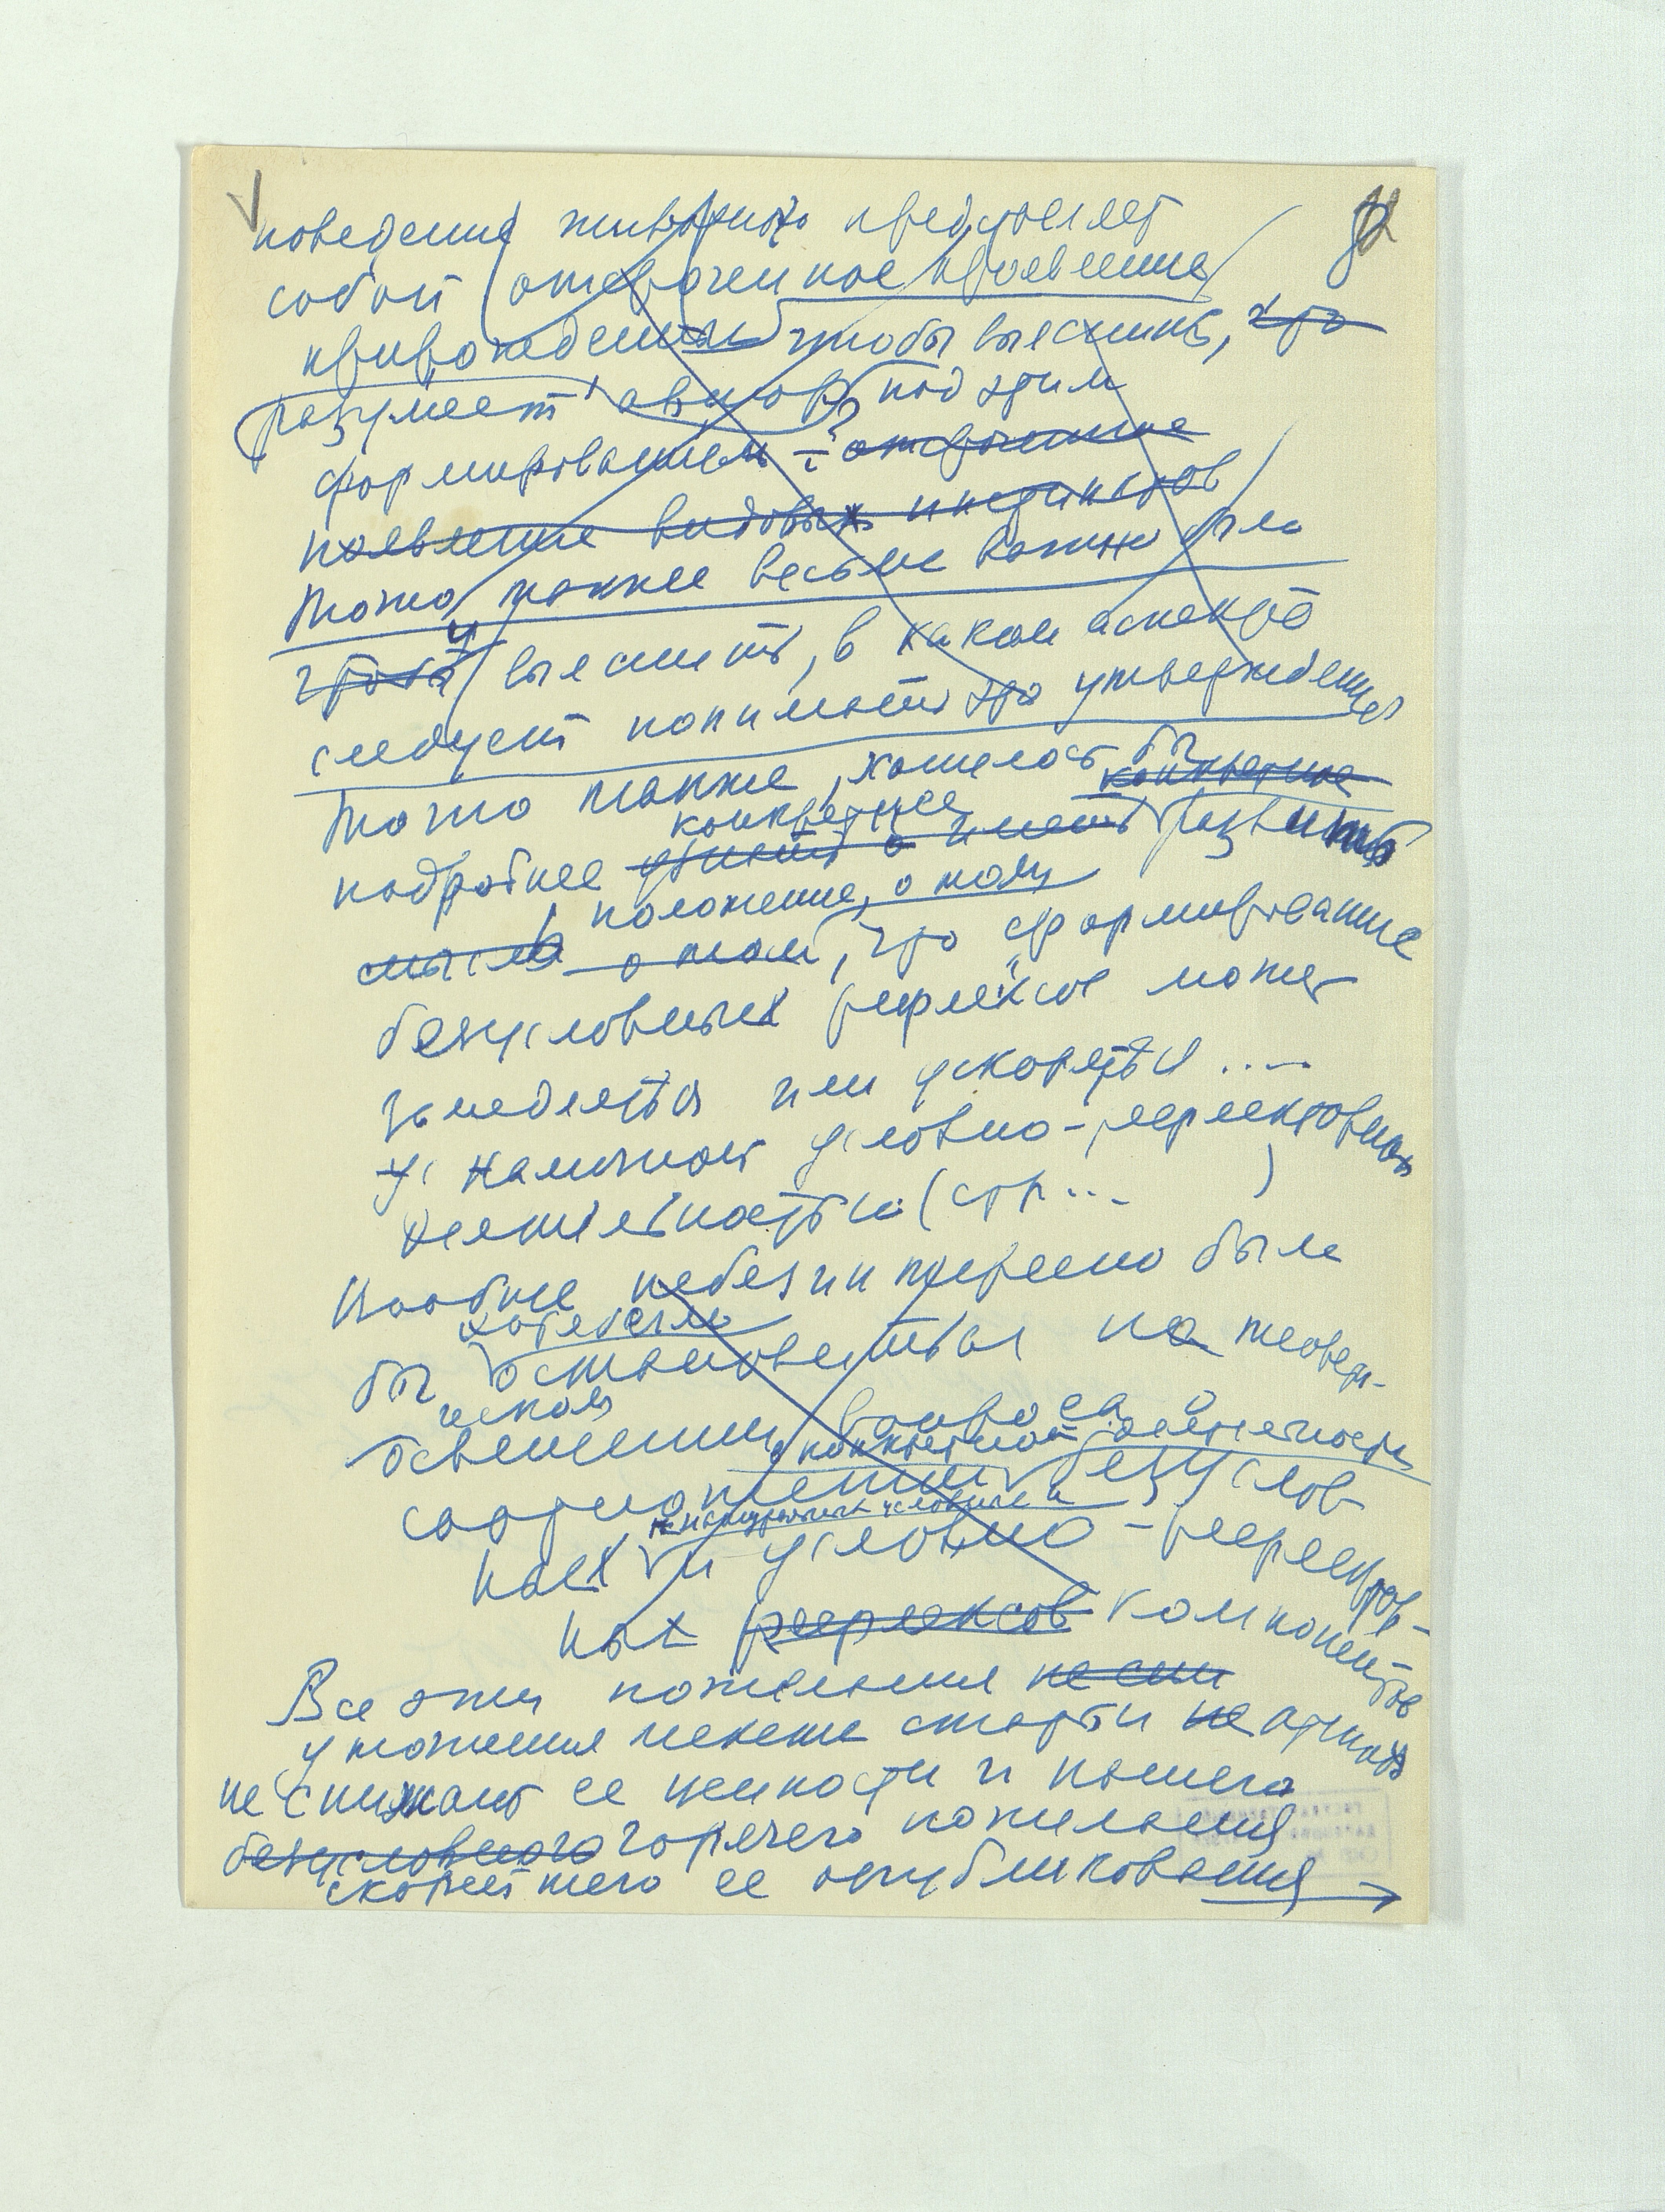 поведения животного представляет
собой отсроченное проявление
врожденны чтобы выяснить, что
разумеет автор под этим
формированием – отсроченное
появление видовых инстинктов
Точно также весьма важно было
чтобы выяснить, в каком аспекте
следует понимать это утверждение
Точно также, хотелось бы конкретнее
подробнее конкретнее развить
мысль положение, о том
о том, что „формирование
безусловных рефлексов может
замедляться или ускоряться ....
у наличност условно-рефлекторной
деятельности (стр... )
Вообще небезинтересно было
хотелось
бы остановиться на теорет-
ическом
освещении вопроса о
конкретной
соотношении безуслов-
ных и условно-рефлектор-
ных рефлексов компонентов
Все эти пожелания не сни
уможения статьи не
не снижают ее ценности и нашего
безусловного горячего пожелания
скорейшего ее опубликования